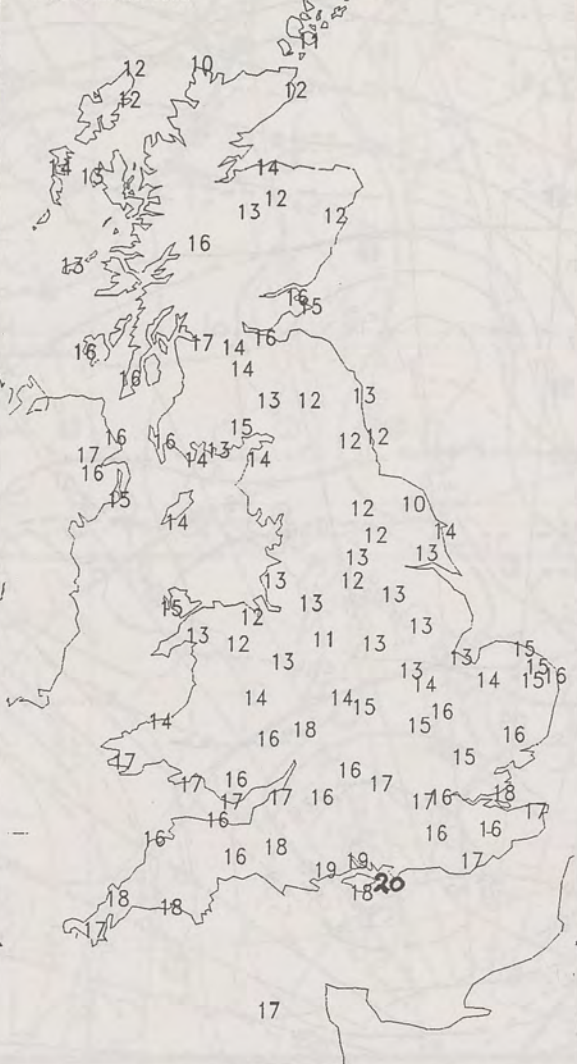 11
12 10
12 12
14 13 14
13 12 12
16
13
16 15
17 14 16
16 14
16
13 12 13
15
16 16 12 12
17 14 13 14
16
15
14
12 10
12 14
13 13
13 12
15 13 13
12
13 12 11 13 13
13 13 15
13 14 14 15 15 16
14 14 15
14 16 18 15 16
16
17 15
16 16 17
17 17 17 16 17 16 18
16 17
16 16 16
16 18
19 19 17
18 20
18 18
17
17